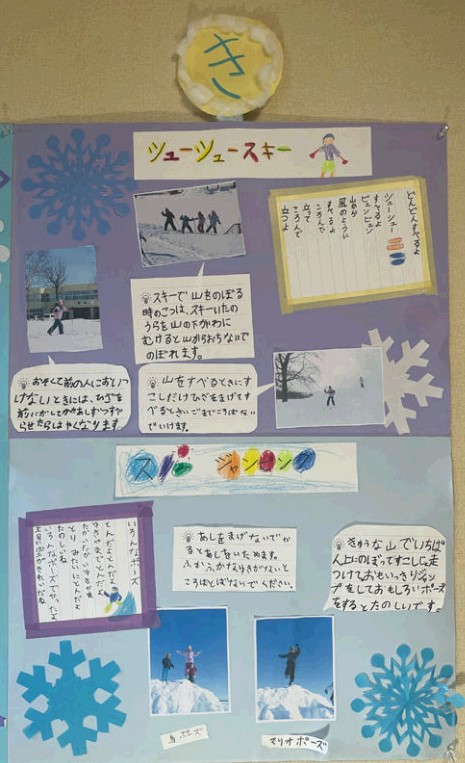 き
シューシュースキー
どんどんすべるよ
シューシュー
すべるよ
ビュンビュン
山から
風のように
すべるよ
ころんで
立って
ころんで
立つよ
スキーで山をのぼる
時のこつは、スキーいたの
うらを山の下がわに
むけると山からおちないで
のぼれます。
おそくて前の人においつ
けないときには、ひざを
山をすべるときにす
こしだけひざをまげてす
べるとさいごまでころばない
でいけます。
スノージャンピング
いろんなポーズ
とんだよとんだよ
とりみたいにとんだよ
たのしいね
いろんなポーズでやったよ
あしをまげないでや
るとあしをいためます。
ふかふかなゆきがないと
ころはとばないでください。
きゅうな山でいちば
ん上にのぼってすこし走
つけておもいっきりジャン
プをしておもしろいポーズ
をするとたのしいです。
鳥ポーズ
マリオポーズ